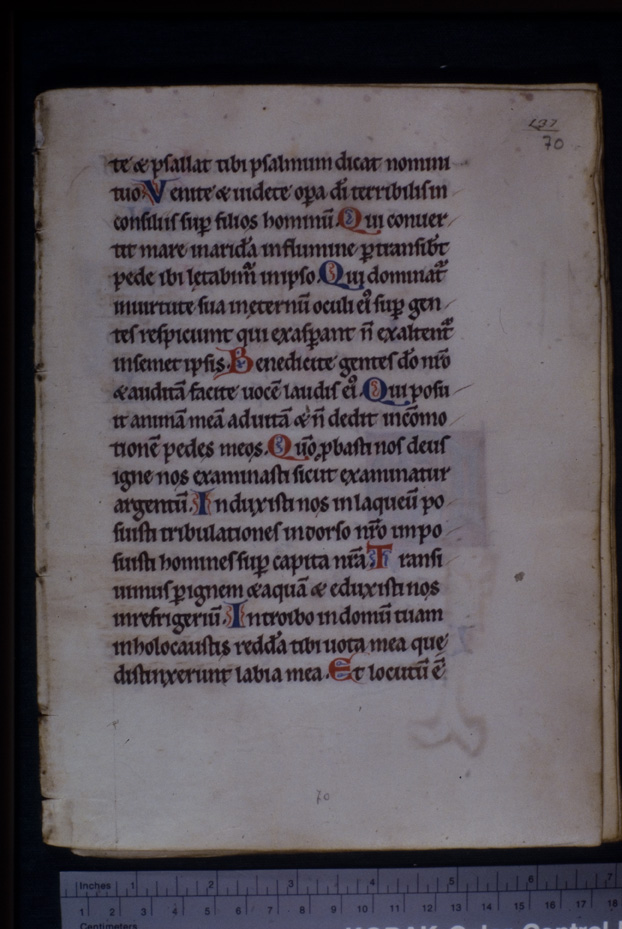 137
70
te & psallat tibi psalmum dicat nomini
tuo Venite & uidete op̄a dī terribilis in
consiliis sup̄ filios hominū. Qui conuer
tit mare inarid̄a influmine ꝑtransibt̄
pede ibi lętabim̄ inipso. Qui dominat᷑
inuirtute sua ineternū oculi ei᷒ sup̄ gen
tes respiciunt qui exasꝑant n̄ exaltent᷑
insemet ipsis. Benedicite gentes dō nr̄o
& auditā facite uocē laudis ei᷒. Qui posu
it animā meā aduitā & n̄ dedit incōmo
tionē pedes meos. Qūo ꝓbasti nos deus
igne nos examinasti sicut examinatur
argentū. Induxisti nos inlaqueū po
suisti tribulationes indorso nr̄o impo
suisti homines sup̄ capita nr̄a. Transi
uimus ꝑignem & aquā & eduxisti nos
inrefrigeriū. Introibo indomū tuam
inholocaustis redd̄a tibi uota mea que
distinxerunt labia mea. Et locutū ē
70
Inches 1 2 3 4 5 6 7
1 2 3 4 5 6 7 8 9 10 11 12 13 14 15 16 17 18
Centimeters